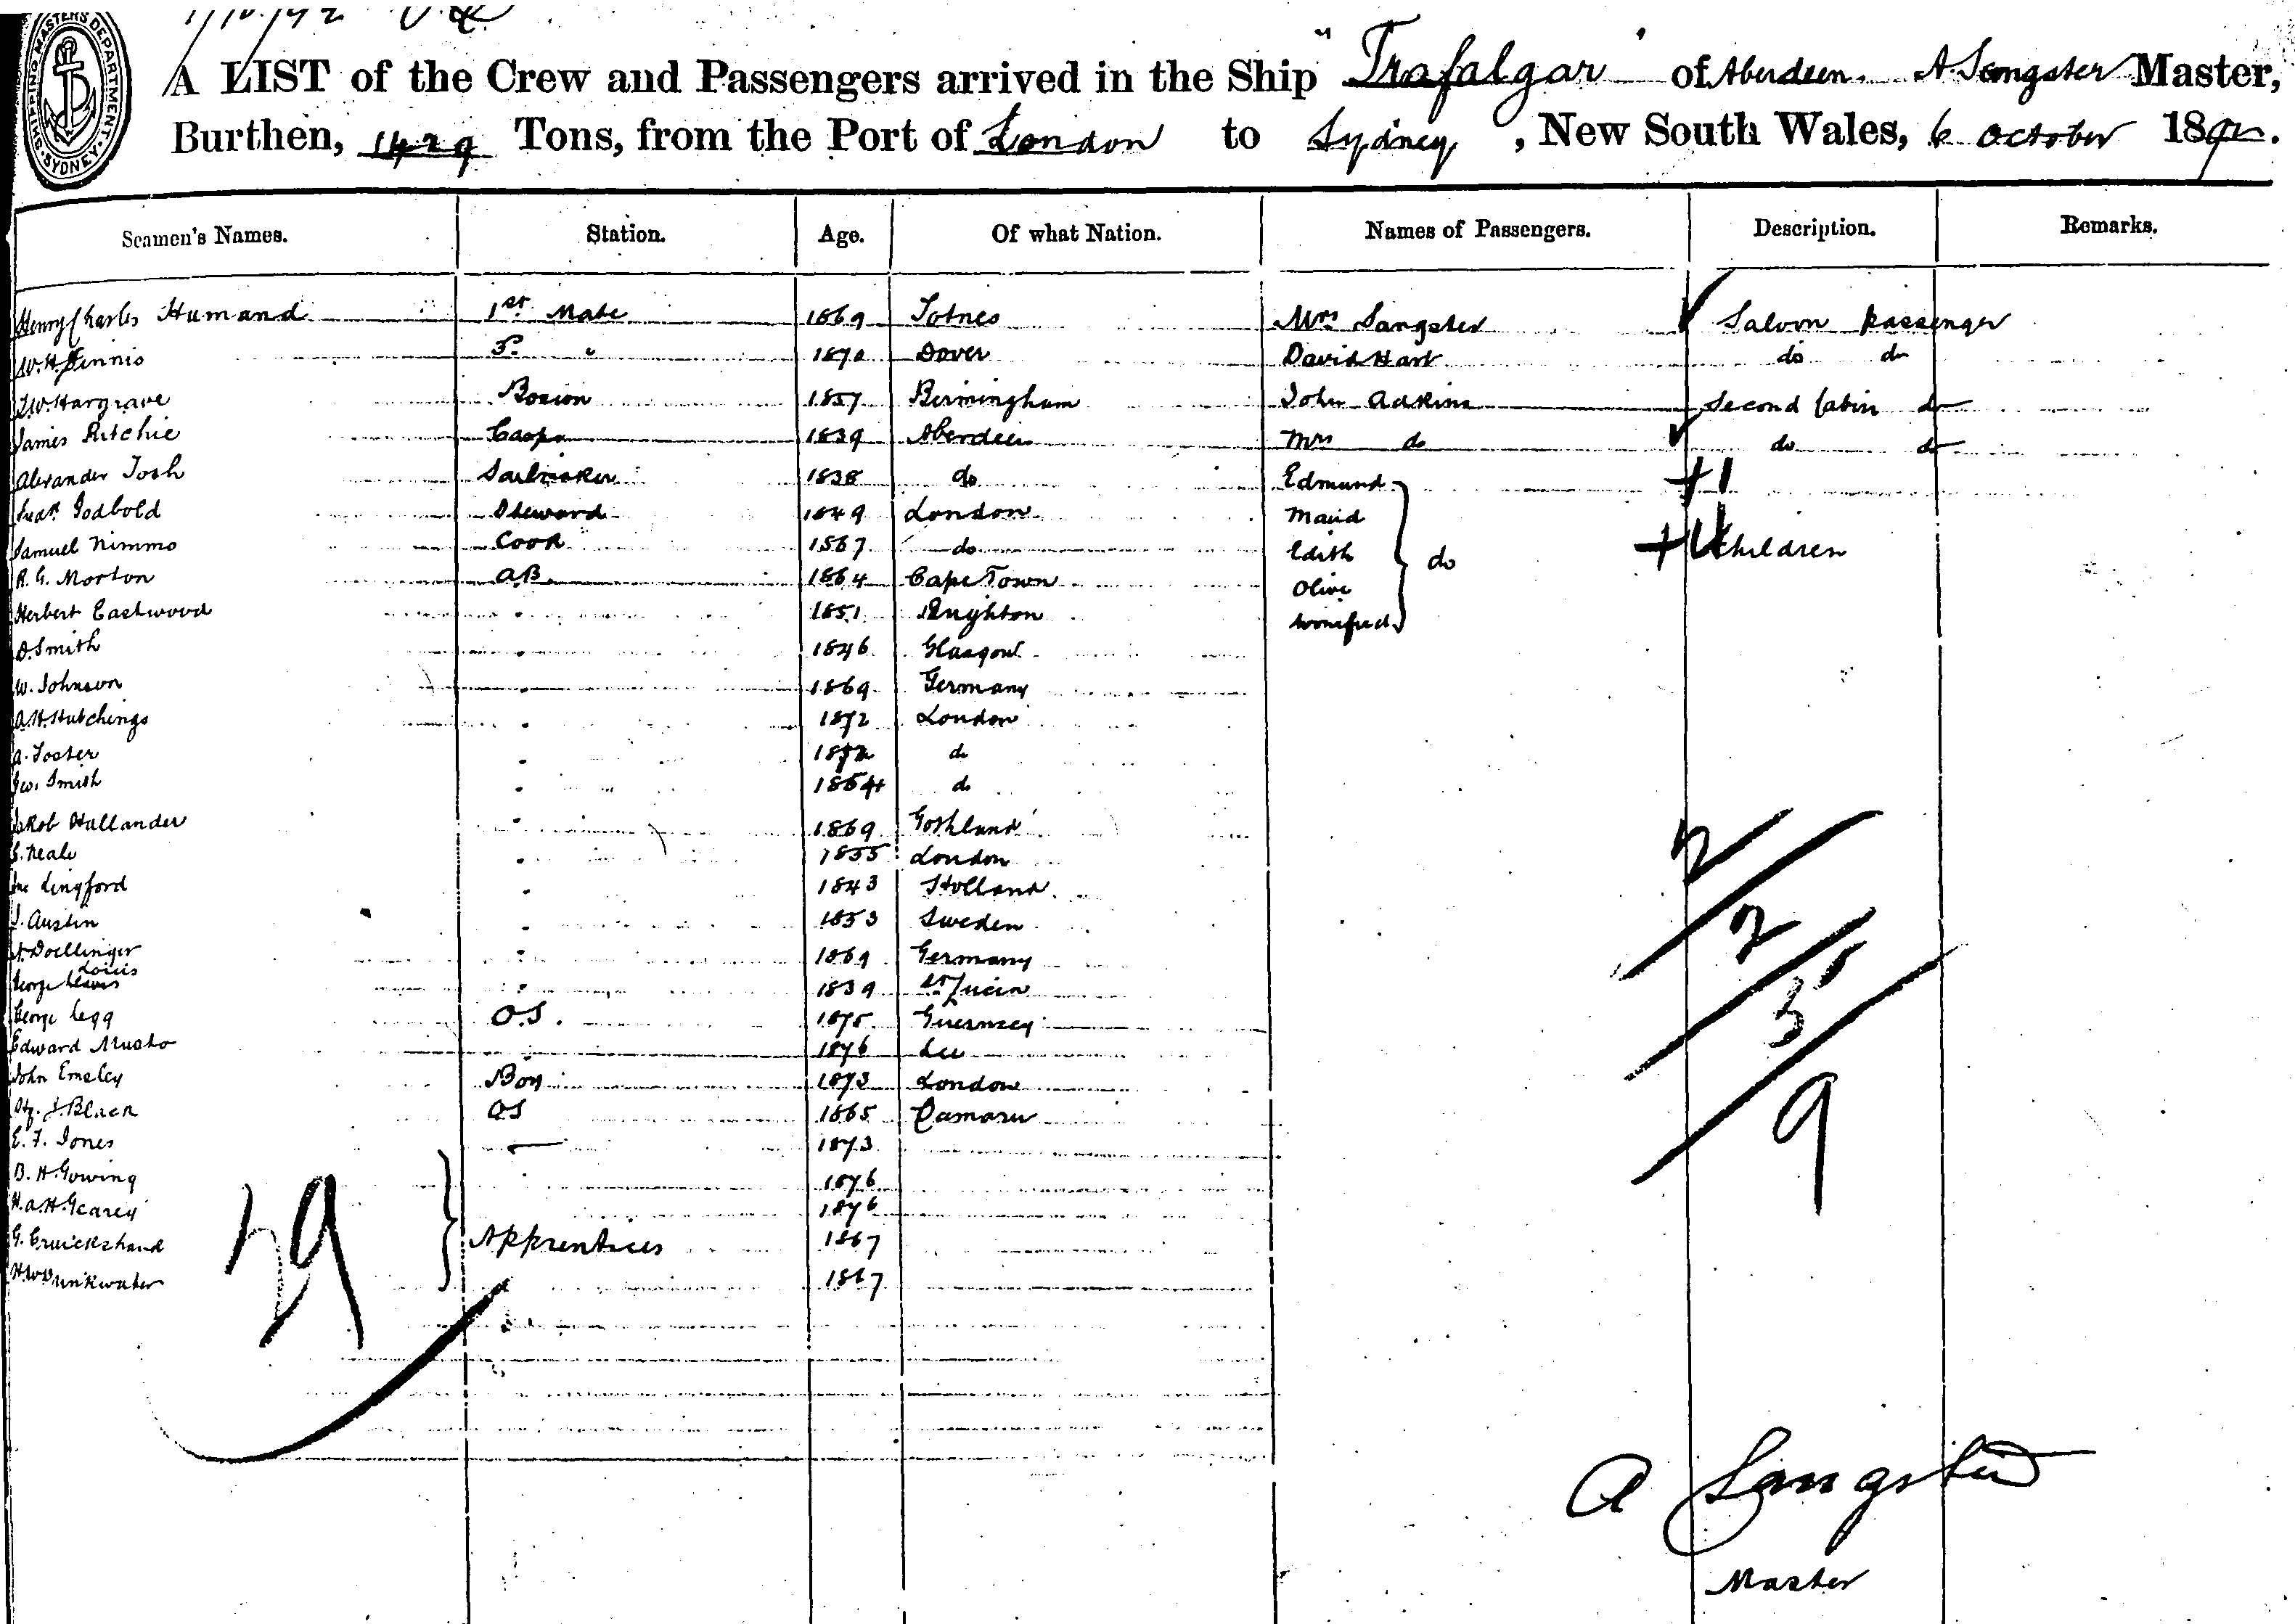 SHIPPING MASTERS DEPARTMENT. SYDNEY.
1/10/92
A LIST of the Crew and Passengers arrived in the Ship "Trafalgar" of Aberdeen. A Sangster Master,
Burthen, 1429 Tons, from the Port of London to Sydney, New South Wales, 6 October 1892.
Seamen's Names. Station. Age. Of what Nation. Names of Passengers. Description. Remarks.
Henry Charles Humand 1st Mate 1869 Totnes Mrs Sangster Saloon passenger
W. H. Dennis " 1870 Dover David Hart do do
T.W. Hargrave Bosion 1857 Birmingham John Adkins Second Cabin do
James Ritchie Carp. 1839 Aberdeen Mrs do do do
Alexander Tosh Sailmaker 1838 do Edmund +1
Fredk Godbold Steward 1849 London Maud
Samuel Nimmo Cook 1867 do Edith do +4 Children
R. G. Morton A.B. 1864 Cape Town Olive
Herbert Eastwood " 1851 Brighton Winifred
D. Smith " 1846 Glasgow
W. Johnson " 1869 Germany
A.H. Hutchings " 1872 London
A. Foster " 1872 do
Smith " 1854 do
Jakob Hallander " 1869 Gothland
Neale " 1855 London
Lingford " 1843 Holland
J. Austin " 1853 Sweden
Doellinger " 1869 Germany
Louis
George " 1839 St Lucia
George Legg O.S. 1875 Guernsey
Edward Musto 1876 Lee
John Emsley Boy 1873 London
J. Black OS 1865 Oamaru
E. F. Jones 1873
B. H. Gowing 1876
H.A.H. Gearey 1876
G. Cruickshank Apprentices 1867
H.W. Drinkwater 1867
29
2
2
5
9
A Sangster
Master